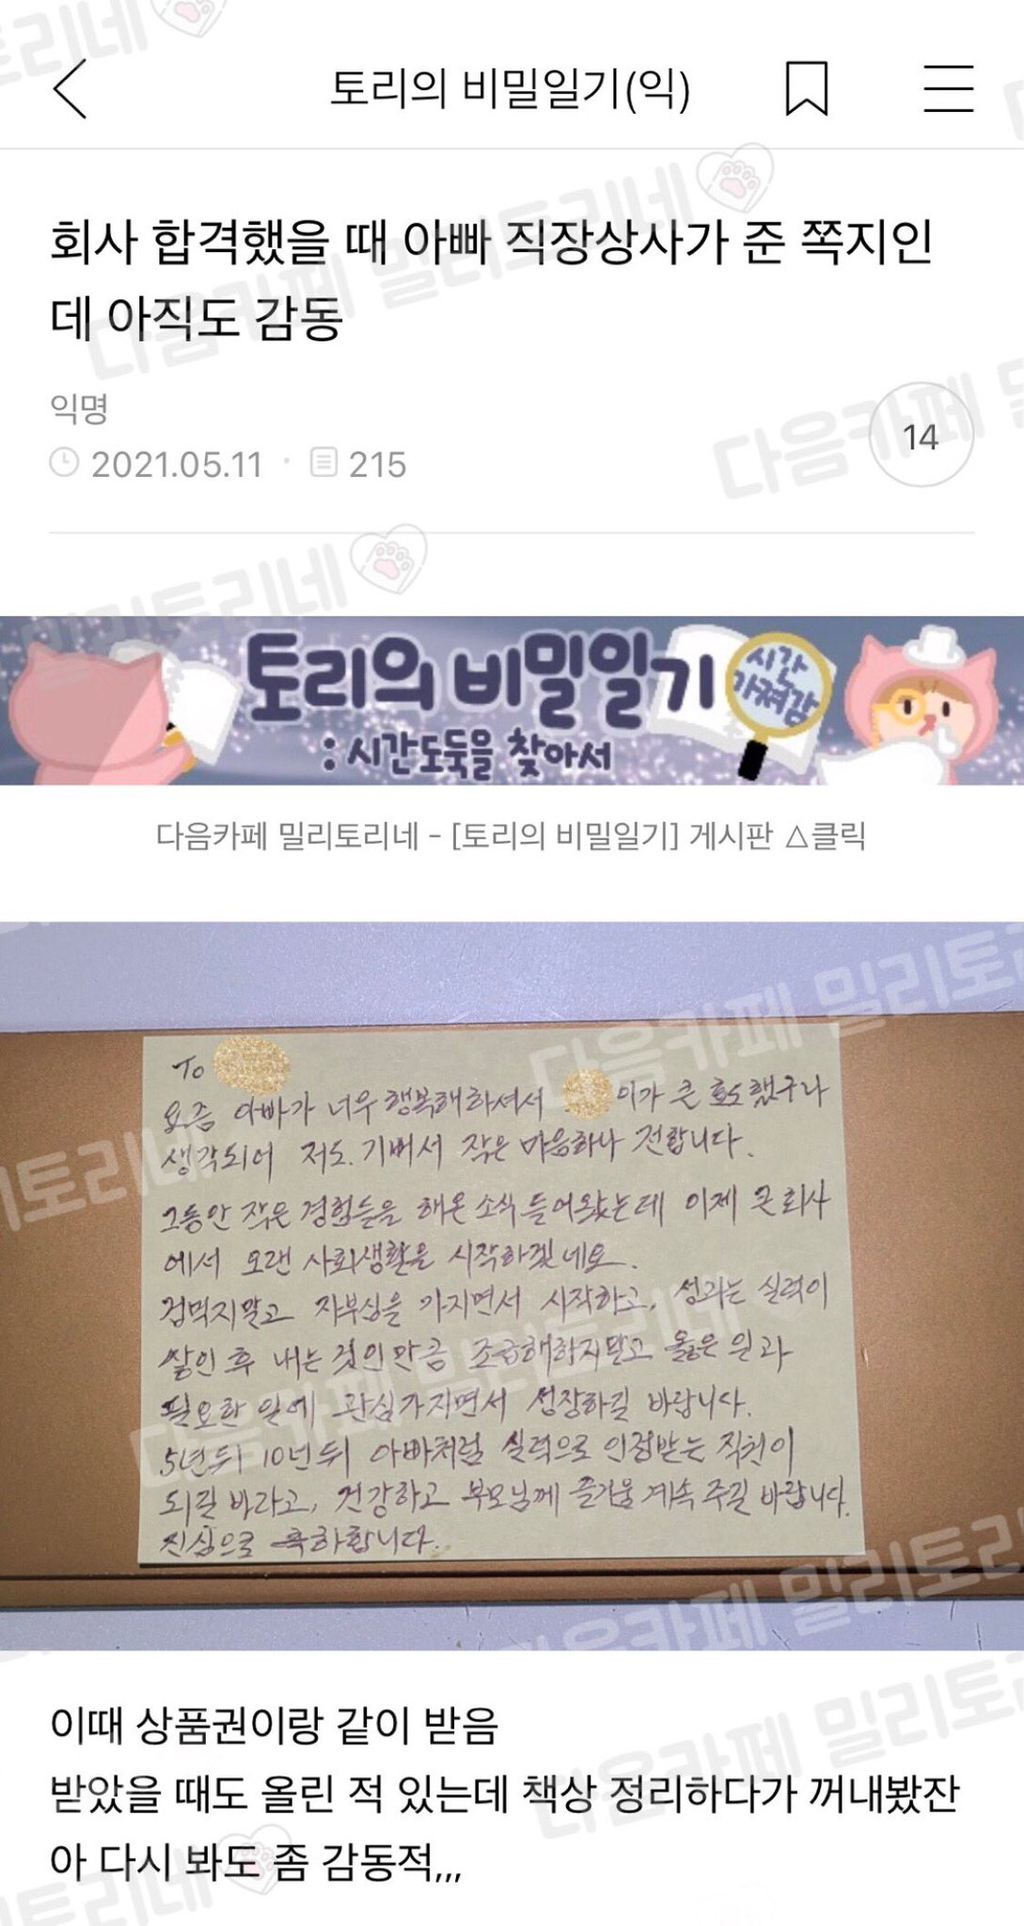 토리의 비밀일기(익)
회사 합격했을 때 아빠 직장상사가 준 쪽지인
데 아직도 감동
익명
2021.05.11 · 215
14
토리의 비밀일기
시간
가져감
: 시간도둑을 찾아서
다음카페 밀리토리네 - [토리의 비밀일기] 게시판 △클릭
To
요즘 아빠가 너무 행복해하셔서 이가 큰 효도했구나
생각되어 저도 기뻐서 작은 마음하나 전합니다.
그동안 작은 경험들을 해온 소식 들어왔는데 이제 큰 회사
에서 오랜 사회생활을 시작하겠네요.
겁먹지말고 자부심을 가지면서 시작하고, 성과는 실력이
쌓인 후 내는 것인만큼 조급해하지말고 옳은 일과
필요한 일에 관심가지면서 성장하길 바랍니다.
5년뒤 10년뒤 아빠처럼 실력으로 인정받는 직원이
되길 바라고, 건강하고 부모님께 즐거움 계속 주길 바랍니다.
진심으로 축하합니다.
이때 상품권이랑 같이 받음
받았을 때도 올린 적 있는데 책상 정리하다가 꺼내봤잔
아 다시 봐도 좀 감동적,,,
다음카페 밀리토리네